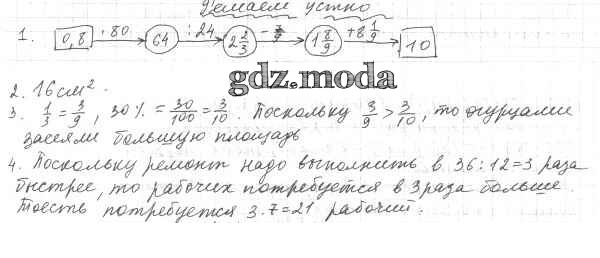 Делаем устно
1. 0,8 · 80 64 : 24 2 2/3 - 7/9 1 8/9 + 8 1/9 10
gdz.moda
2. 16 см².
3. 1/3 = 3/9, 30% = 30/100 = 3/10. Поскольку 3/9 > 3/10, то огурцами
засеяли большую площадь
4. Поскольку ремонт надо выполнить в 36:12=3 раза
быстрее, то рабочих потребуется в 3 раза больше.
Тоесть потребуется 3·7=21 рабочий.